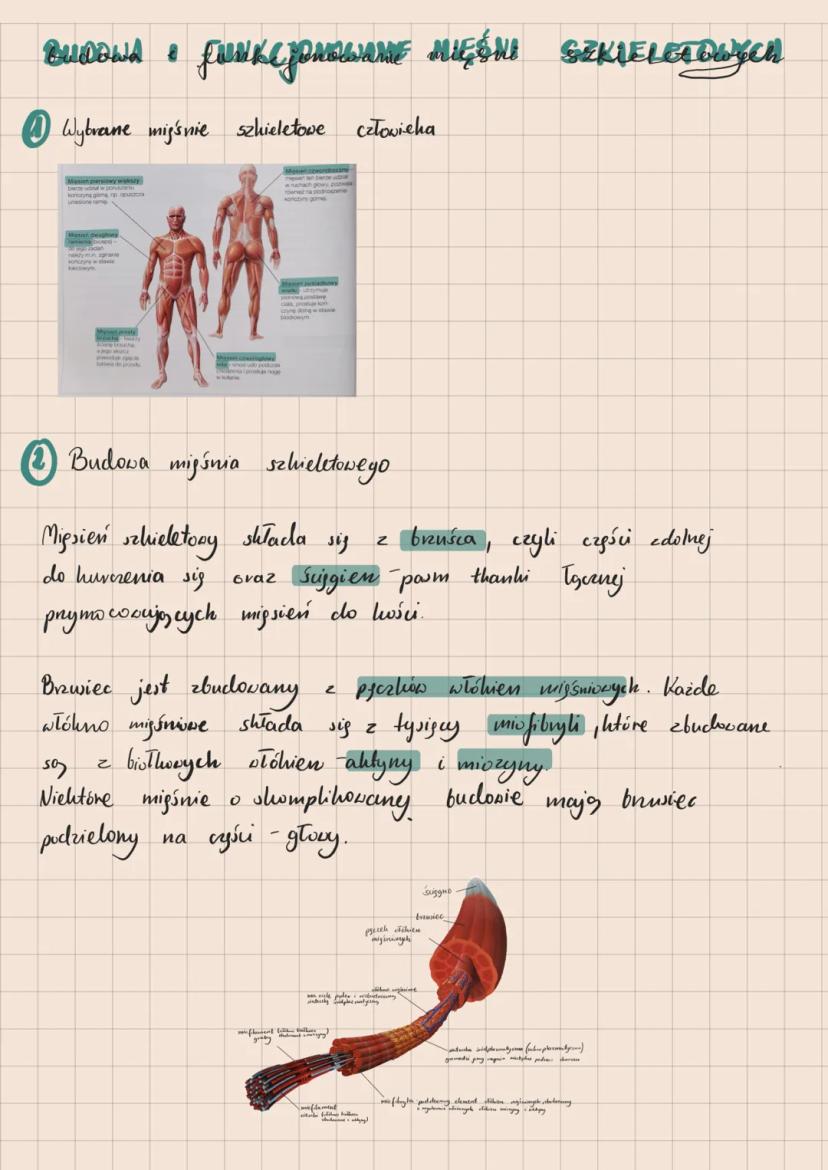 budowa i funkcjonowanie mięśni szkieletowych
1 Wybrane mięśnie szkieletowe człowieka
Mięsień piersiowy większy
bierze udział w poruszaniu
kończyną górną, np. opuszcza
uniesione ramię.
Mięsień czworoboczny
mięsień ten bierze udział
w ruchach głowy, pozwala
również na podnoszenie
kończyny górnej.
Mięsień dwugłowy
ramienia (biceps) –
do jego zadań
należy m.in. zginanie
kończyny w stawie
łokciowym.
Mięsień pośladkowy
wielki – utrzymuje
pionową postawę
ciała, prostuje koń-
czynę dolną w stawie
biodrowym.
Mięsień prosty
brzucha – tworzy
ścianę brzucha,
a jego skurcz
powoduje zgięcie
tułowia do przodu.
Mięsień czworogłowy
uda – unosi udo podczas
chodzenia i prostuje nogę
w kolanie.
2 Budowa mięśnia szkieletowego
Mięsień szkieletowy składa się z brzuśca, czyli części zdolnej
do kurczenia się oraz ścięgien - pasm tkanki łącznej
przymocowujących mięsień do kości.
Brzusiec jest zbudowany z pęczków włókien mięśniowych. Każde
włókno mięśniowe składa się z tysięcy miofibryli, które zbudowane
są z białkowych włókien - aktyny i miozyny.
Niektóre mięśnie o skomplikowanej budowie mają brzusiec
podzielony na części - głowy.
ścięgno
brzusiec
pęczek włókien
mięśniowych
włókno mięśniowe
miofilament
gruby
miofilament